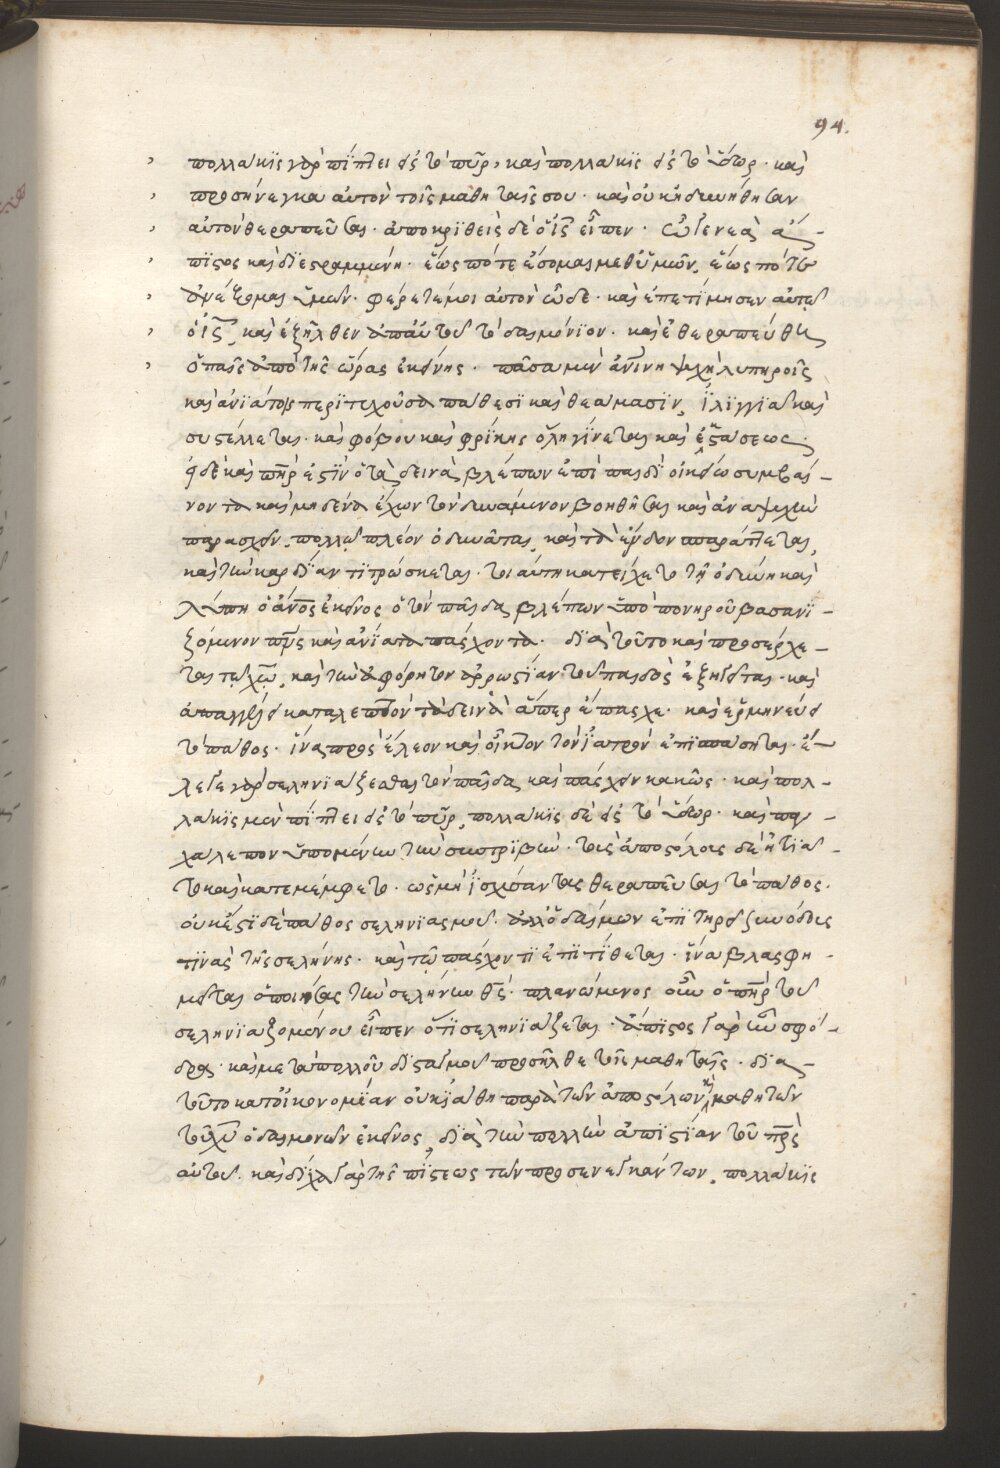 94.
πολλάκϊς γὰρ πίπτει εἰς τὸ πῦρ, καὶ πολλάκϊς εἰς τὸ ὕδωρ · καὶ
προσήνεγκα αὐτὸν τοῖς μαθηταῖς σου · καὶ οὐκ ἠδυνήθησαν
αὐτὸν θεραπεῦσαι · ἀποκρϊθεὶς δὲ ὁ ἰς εἶπεν · ὦ γενεὰ ἄ-
πϊστος καὶ δϊεστραμμένη · ἕως πότε ἔσομαι μεθ' ὑμῶν, ἕως πότε
ἀνέξομαι ὑμῶν · φέρετέ μοι αὐτὸν ὧδε · καὶ ἐπετίμησεν αὐτῷ
ὁ ἰς, καὶ ἐξῆλθεν ἀπ' αὐτοῦ τὸ δαιμόνϊον · καὶ ἐθεραπεύθη
ὁ παῖς ἀπὸ τῆς ὥρας ἐκείνης · πᾶσα μὲν ἀνϊνη ψυχὴ λυπηροῖς
καὶ ἀνϊάτοις περϊτυχοῦσα παθεσϊ καὶ θεάμασϊν, ἰλϊγγϊᾶ καὶ
συστέλλεται · καὶ φόβου καὶ φρίκης ὅλη γίνεται καὶ ἐκστάσεως ·
εἰ δὲ καὶ πὴρ ἐστϊν ὁ τὰ δεινὰ βλέπων ἐπὶ παιδὶ οἰκείω συμβαί-
νοντα καὶ μηδένα ἔχων τὸν δυνάμενον βοηθῆσαι καὶ ἀναψυχὴν
παρασχεῖν, πολλῷ πλέον ὀδυνᾶται, καὶ τὰ ἔνδον σπαράττεται,
καὶ τὴν καρδίαν τϊτρώσκεται · τοιαύτη κατείχετο τῇ ὀδύνη καὶ
λύπη ὁ ἄνος ἐκεῖνος ὁ τὸν παῖδα βλέπων ὑπὸ πονηροῦ βασανϊ-
ζόμενον πνς καὶ ἀνίατα πάσχοντα · δϊὰ τοῦτο καὶ προσέρχε-
ται τῷ χῷ, καὶ τὴν ἀφόρητον ἀρρωστίαν τοῦ παιδὸς ἐξηγεῖται · καὶ
ἀπαγγέλλει καταλεπτὸν τὰ δεινὰ ἅπερ ἔπασχε · καὶ ἑρμηνεύει
τὸ πάθος · ἵνα πρὸς ἔλεον καὶ οἶκτον τὸν ἰατρὸν ἐπϊσπάσηται · ἔ-
λεγε γὰρ σεληνϊάζεσθαι τὸν παῖδα, καὶ πάσχειν κακῶς · καὶ πολ-
λάκϊς μὲν πίπτει εἰς τὸ πῦρ, πολλάκϊς δὲ εἰς τὸ ὕδωρ · καὶ παγ-
χάλεπον ὑπομένειν τὴν συντρϊβὴν · τοῖς ἀποστόλοις δὲ ἠτϊᾶ-
το καὶ κατεμέμφετο · ὡς μὴ ἰσχύσαντας θεραπεῦσαι τὸ πάθος ·
οὐκ ἔστϊ δὲ πάθος σεληνϊασμοῦ · ἀλλ' ὁ δαίμων ἐπϊτηρεῖ συνόδους
τϊνὰς τῆς σελήνης · καὶ τῷ πάσχοντϊ ἐπϊτίθεται · ἵνα βλασφη-
μεῖται ὁ ποιήσας τὴν σελήνην θς · πλανώμενος οὖν ὁ πὴρ τοῦ
σεληνϊαζομένου εἶπεν ὅτϊ σεληνϊάζεται · ἄπϊστος γὰρ ἦν σφό-
δρα · καὶ μετὰ πολλοῦ δϊσταγμοῦ προσῆλθε τοῖς μαθηταῖς · δϊὰ
τοῦτο κατ' οἰκονομίαν οὐκ ϊάθη παρὰ τῶν ἀποστόλων καὶ μαθητῶν
τοῦ χυ ὁ δαιμονῶν ἐκεῖνος, δϊὰ τὴν πολλὴν ἀπϊστίαν τοῦ πρς
αὐτοῦ · καὶ δίχα γὰρ τῆς πίστεως τῶν προσενεγκάντων, πολλάκϊς